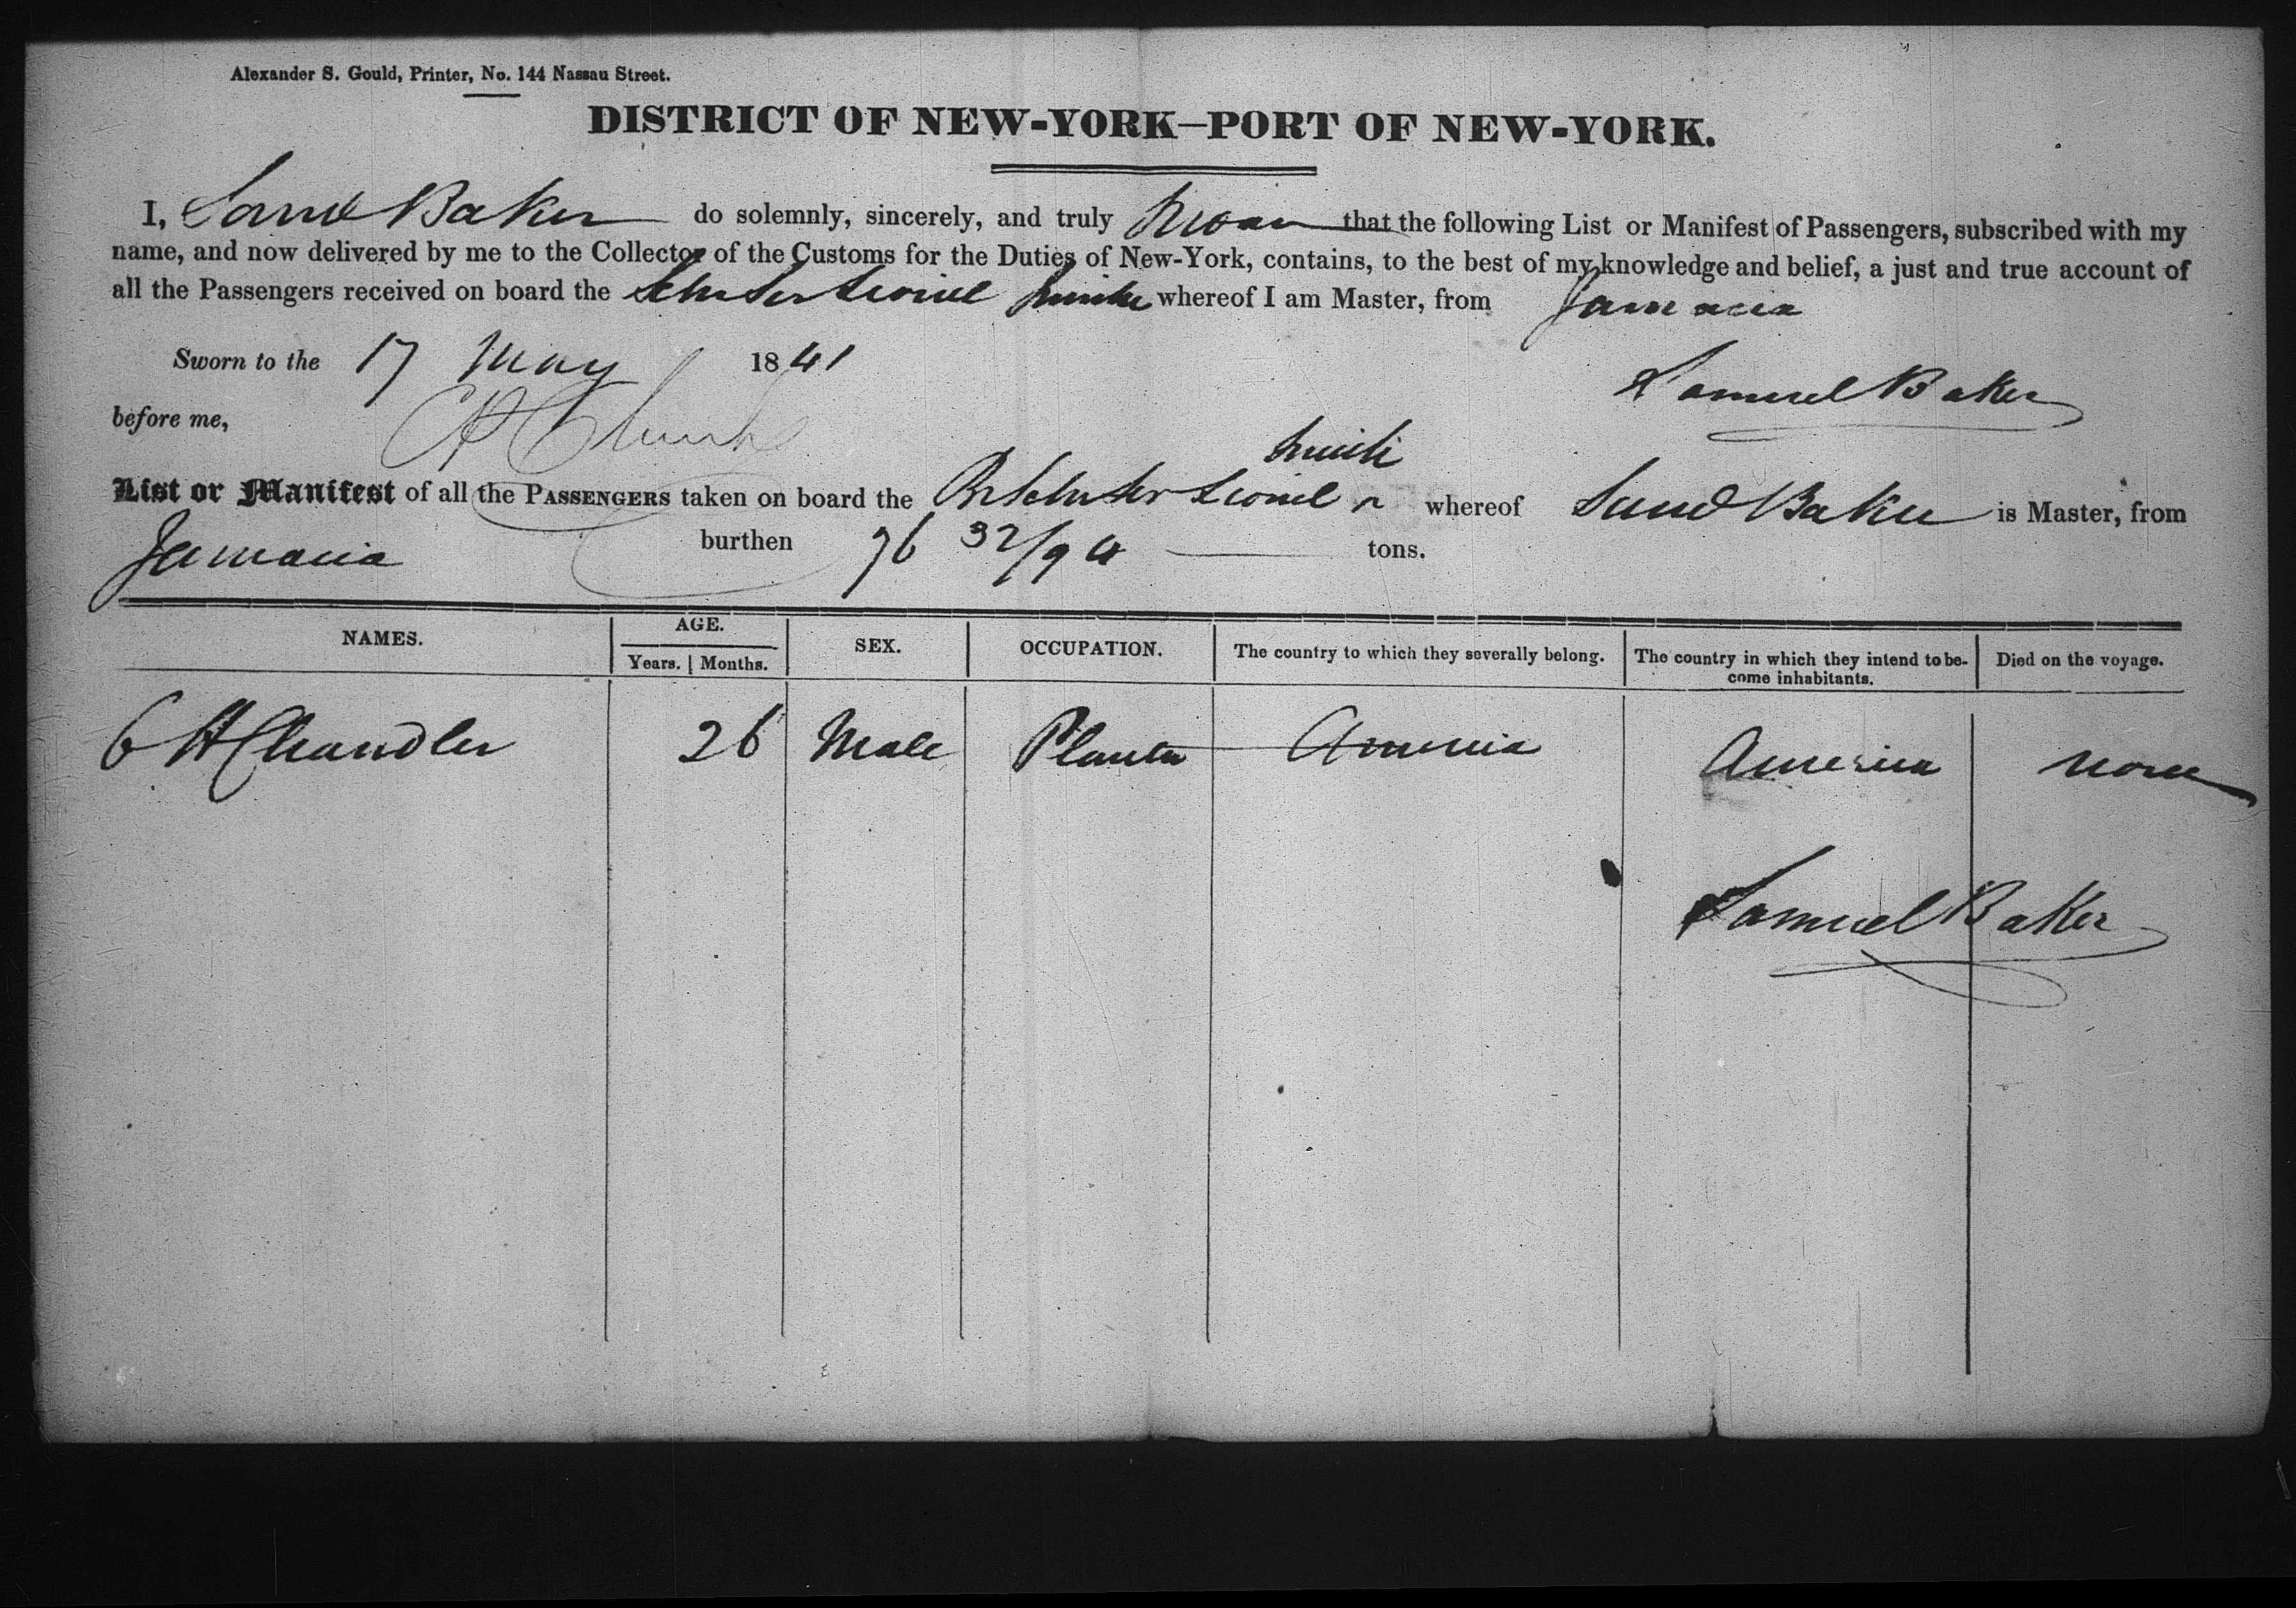 Alexander S. Gould, Printer, No. 144 Nassau Street.
DISTRICT OF NEW-YORK—PORT OF NEW-YORK.
I, Saml Baker do solemnly, sincerely, and truly Swear that the following List or Manifest of Passengers, subscribed with my
name, and now delivered by me to the Collector of the Customs for the Duties of New-York, contains, to the best of my knowledge and belief, a just and true account of
all the Passengers received on board the Lionel Smith whereof I am Master, from Jamacia
Sworn to the 17 May 1841
Samuel Baker
before me,
Smith
List or Manifest of all the PASSENGERS taken on board the Br Lionel whereof Saml Baker is Master, from
Jamacia burthen 76 32/94 tons.
NAMES. AGE. SEX. OCCUPATION. The country to which they severally belong. The country in which they intend to be- Died on the voyage.
Years. Months. come inhabitants.
C H Chandler 26 Male Planter America America None
Samuel Baker